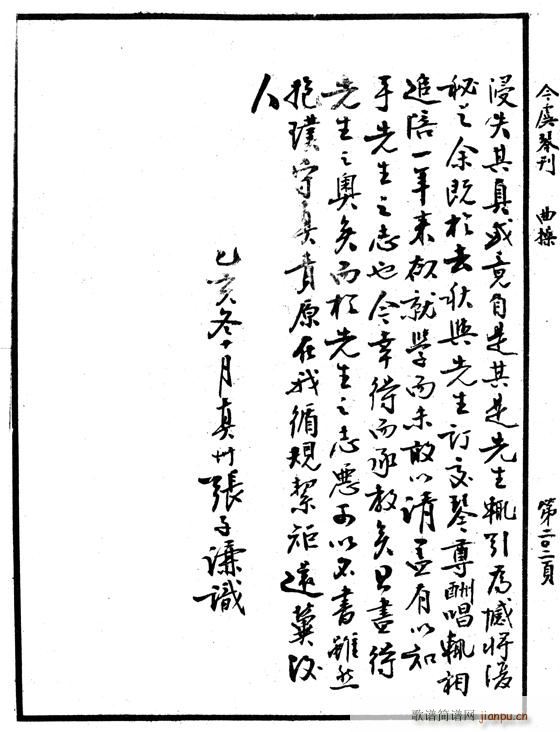 今虞琴刊　曲操　第二〇二頁
浸失其真或竟自是其是先生輒引為憾將復
秘之余既於去秋與先生訂交琴尊酬唱輒相
追陪一年来欲就學而未敢以請蓋有以知
乎先生之志也今幸得而承教矣且盡得
先生之奥矣而於先生之志惡可以不書雖然
抱璞守真責原在我循規絜矩還冀後
人
乙亥冬十月真州張子謙識
歌谱简谱网 jianpu.cn